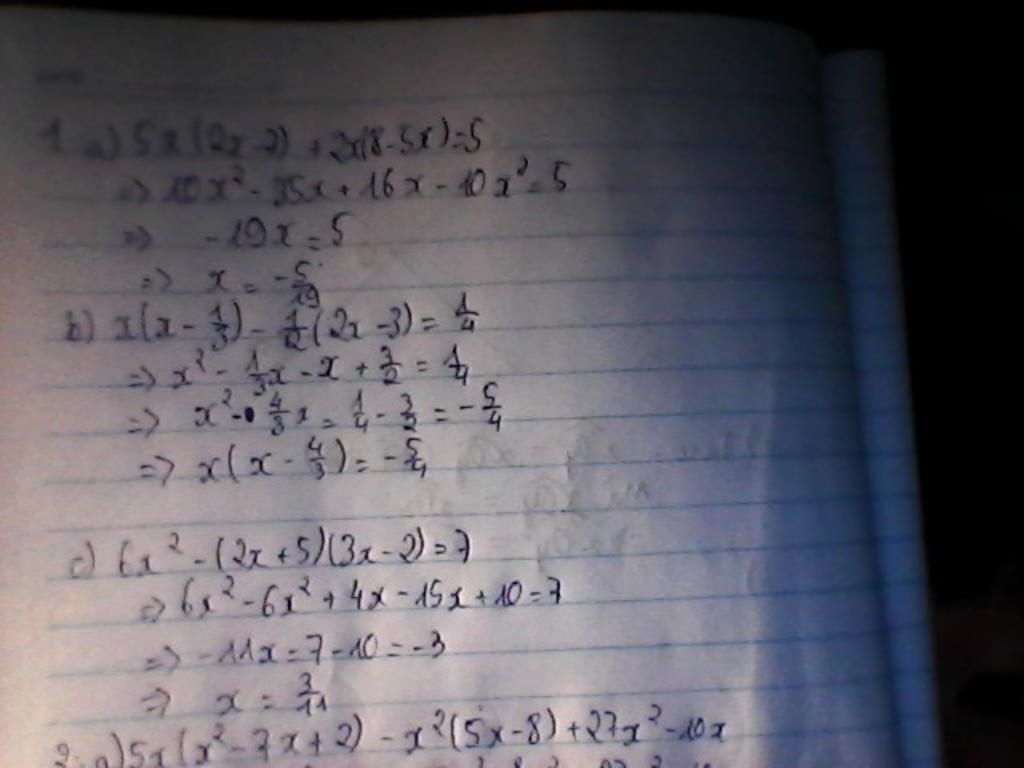 1. a) 5x(2x-7) + 2x(8-5x)=5
=> 10x² - 35x + 16x - 10x² = 5
=> -19x = 5
=> x = -5/19
b) x(x - 1/3) - 1/2(2x - 3) = 1/4
=> x² - 1/3x - x + 3/2 = 1/4
=> x² - 4/3x = 1/4 - 3/2 = -5/4
=> x(x - 4/3) = -5/4
c) 6x² - (2x + 5)(3x - 2) = 7
=> 6x² - 6x² + 4x - 15x + 10 = 7
=> -11x = 7 - 10 = -3
=> x = 3/11
2. a) 5x(x² - 7x + 2) - x²(5x - 8) + 27x² - 10x